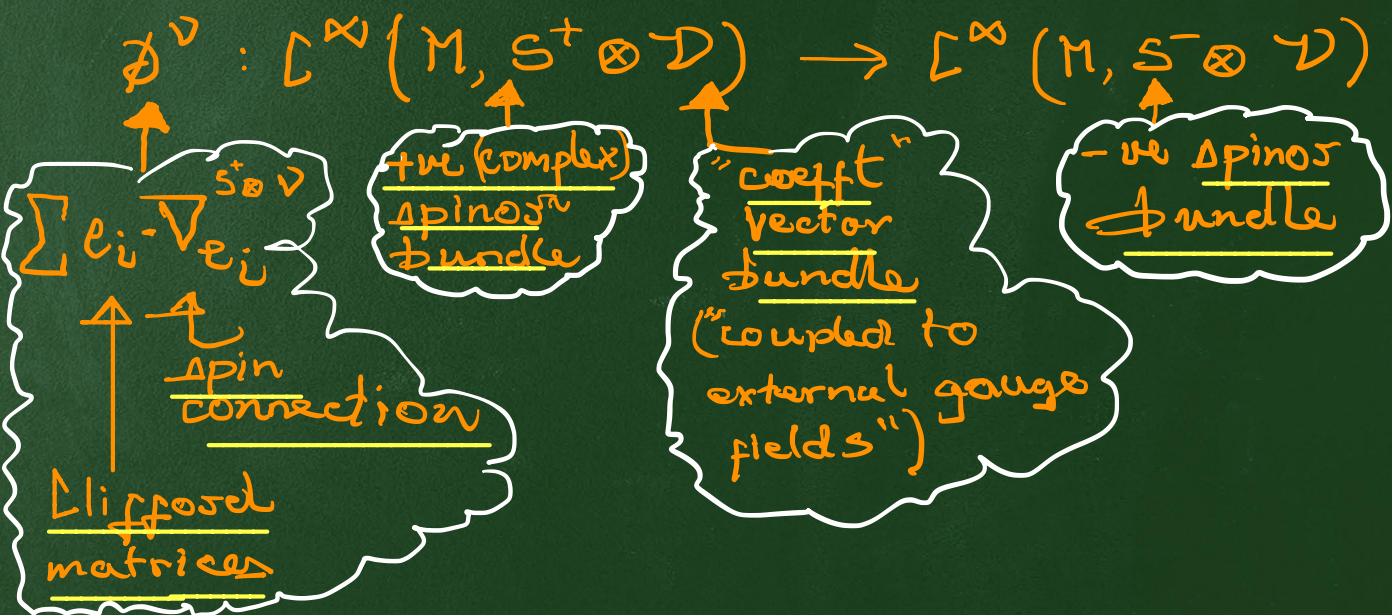 ∂̸^V : C^∞ (M, S⁺ ⊗ V) → C^∞ (M, S⁻ ⊗ V)
Σ e_i · ∇_{e_i}^{S⁺⊗V}
spin
connection
Clifford
matrices
+ve (complex)
spinor
bundle
"coefft"
vector
bundle
("coupled to
external gauge
fields")
-ve spinor
bundle